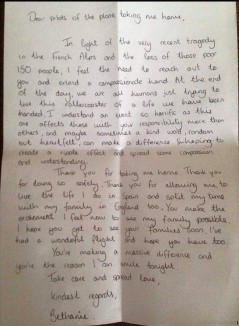 Dear pilots of the plane taking me home,
In light of the very recent tragedy
in the French Alps and the loss of those poor
150 people, I feel the need to reach out to
you and extend a compassionate hand. At the end
of the day, we are all humans just trying to
live this rollercoaster of a life we have been
handed. I understand an event so horrific as this
one affects those with your responsibility more than
others, and maybe sometimes a kind word, random
but heartfelt, can make a difference. I'm hoping to
create a ripple effect and spread some compassion
and understanding.
Thank you for taking me home. Thank you
for doing so safely. Thank you for allowing me to
live the life I do in Spain and split my time
with my family in England too. You make the
excitement I feel now to see my family possible.
I hope you get to see your families soon. I've
had a wonderful flight and hope you have too.
You're making a massive difference and
you're the reason I can smile tonight.
Take care and spread love,
Kindest regards,
Bethanie